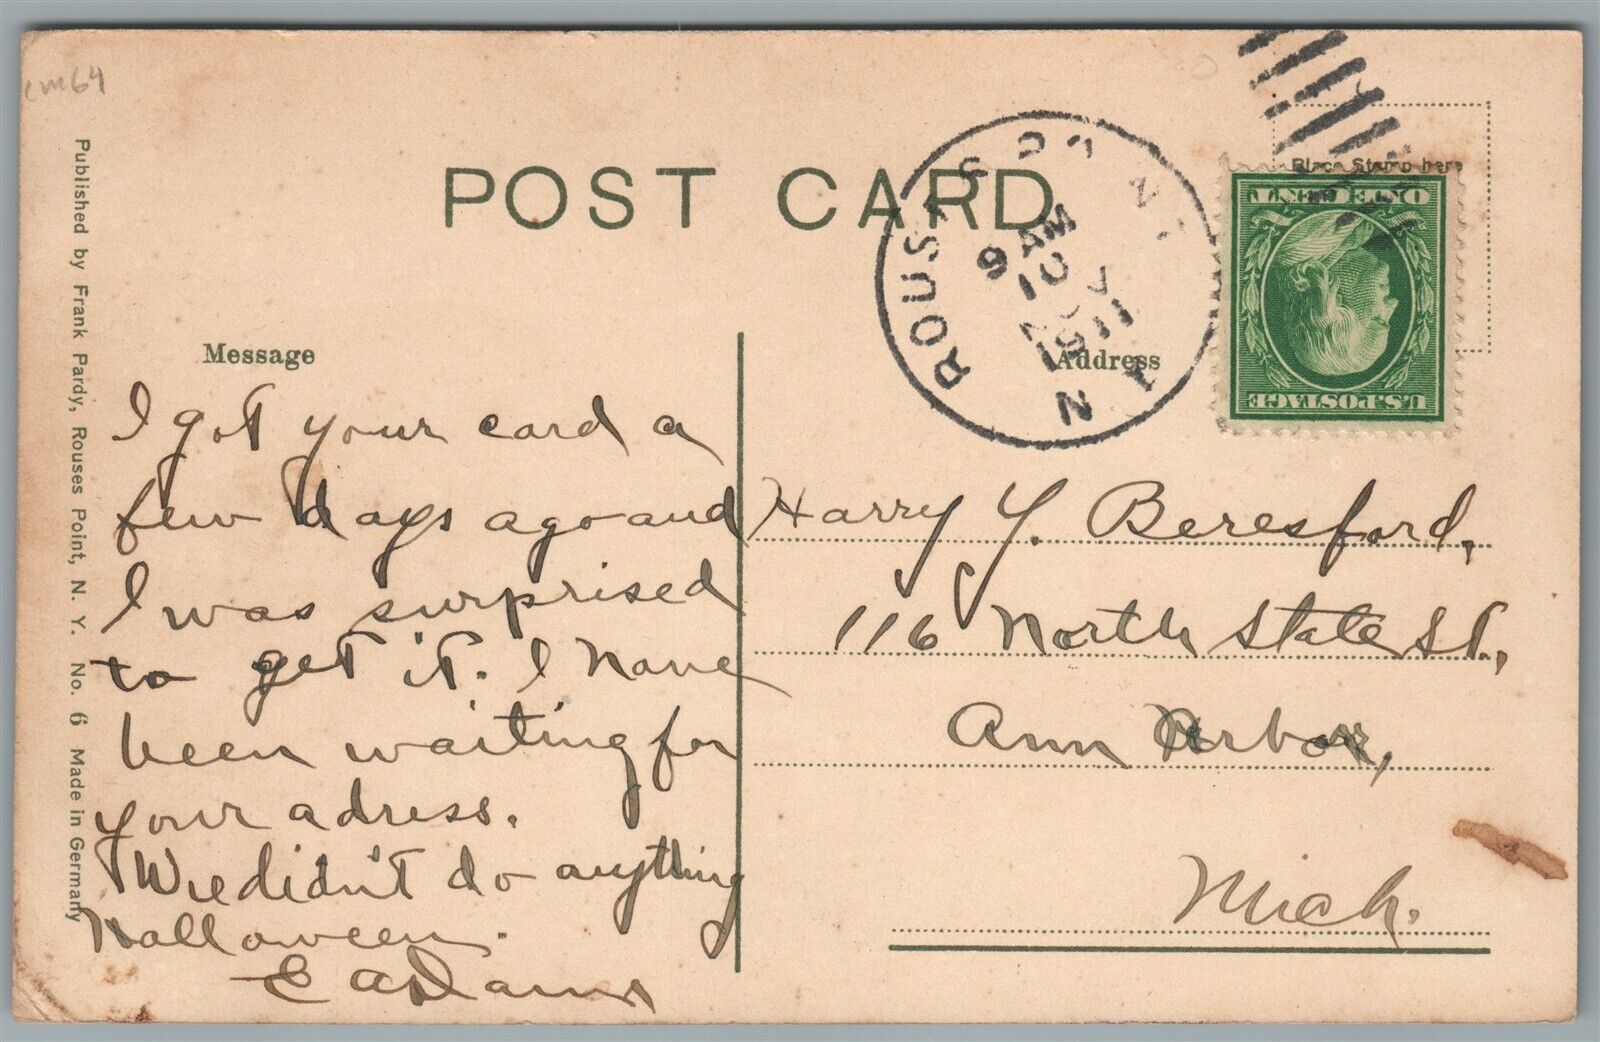 cm64
POST CARD
Place Stamp here
ONE CENT
U.S. POSTAGE
ROUSES POINT
9 AM
10
1911
N
Message
Address
I got your card a
few days ago and
I was surprised
to get it. I have
been waiting for
your adress.
We didn't do anything
Halloween.
E Adams
Harry Y. Beresford,
116 North State St.,
Ann Arbor,
Mich.
Published by Frank Pardy, Rouses Point, N. Y. No. 6 Made in Germany